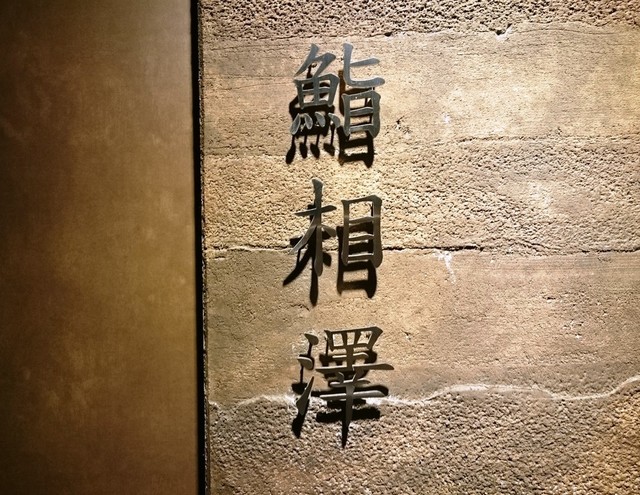 鮨相澤